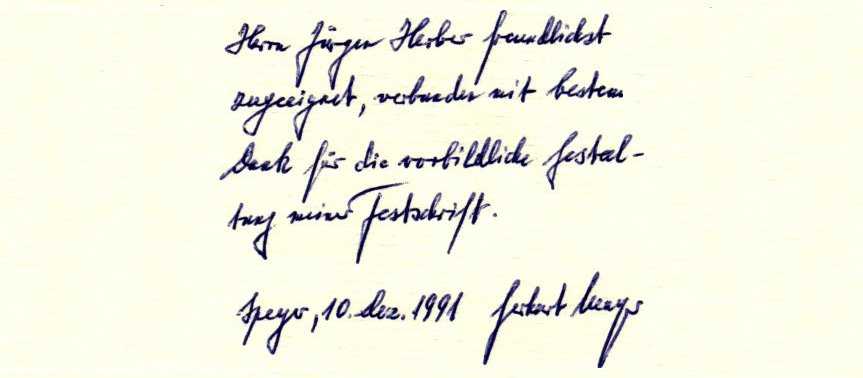 Herrn Jürgen Herber freundlichst
zugeeignet, verbunden mit bestem
Dank für die vorbildliche Gestal-
tung meiner Festschrift.
Speyer, 10. Dez. 1991